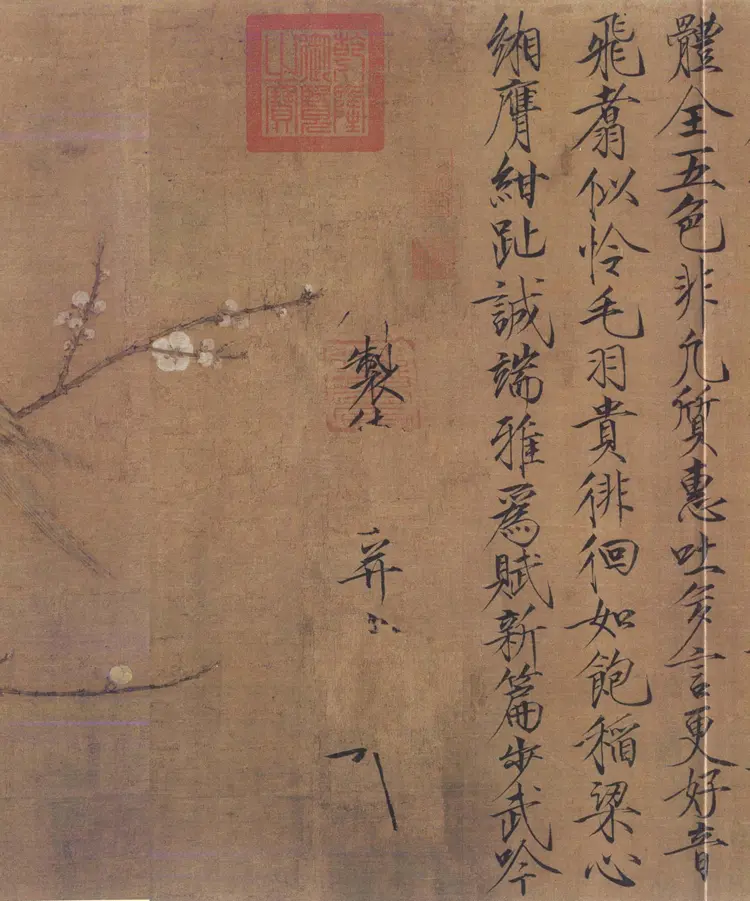 體全五色非凡質惠吐多言更好音
飛翥似憐毛羽貴徘徊如飽稻粱心
緗膺紺趾誠端雅爲賦新篇步武吟
製
乾隆御覽之寶